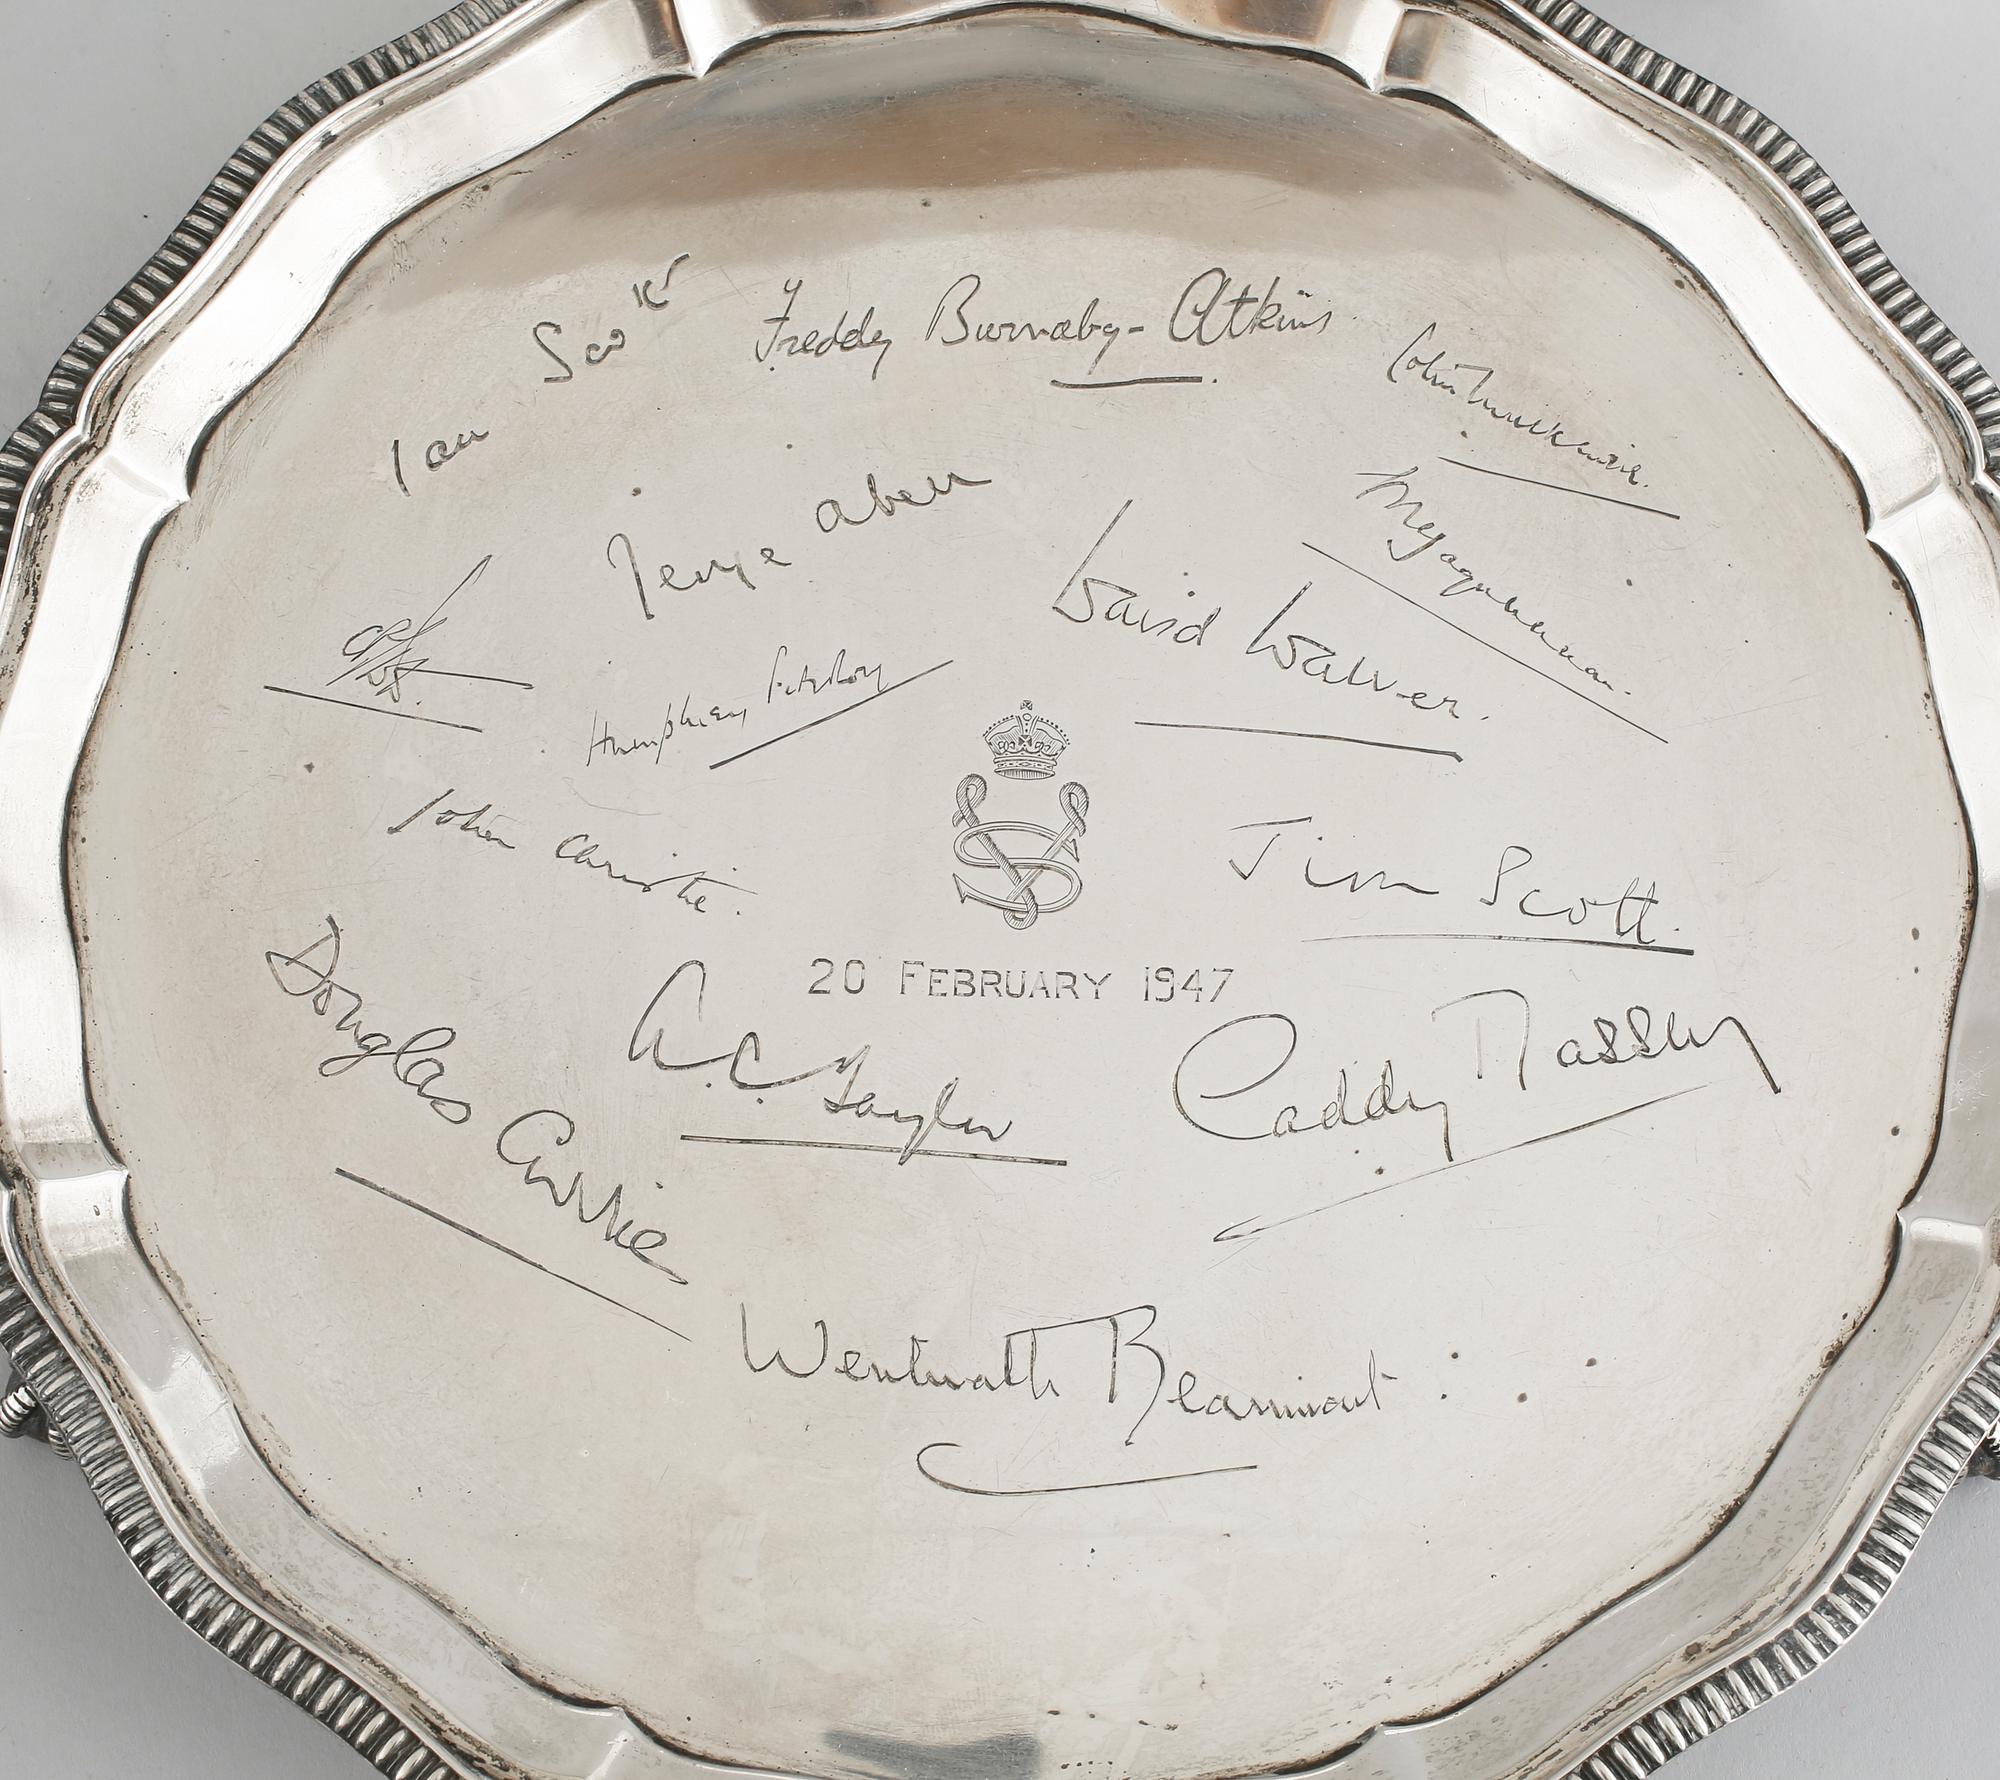 Ian Scott
Freddy Burnaby-Atkins
Colin
David Walker.
Humphrey FitzRoy
John Christie.
Jim Scott.
20 FEBRUARY 1947
Douglas Currie
A.C. Taylor
Paddy Massey
Wentworth Beaumont